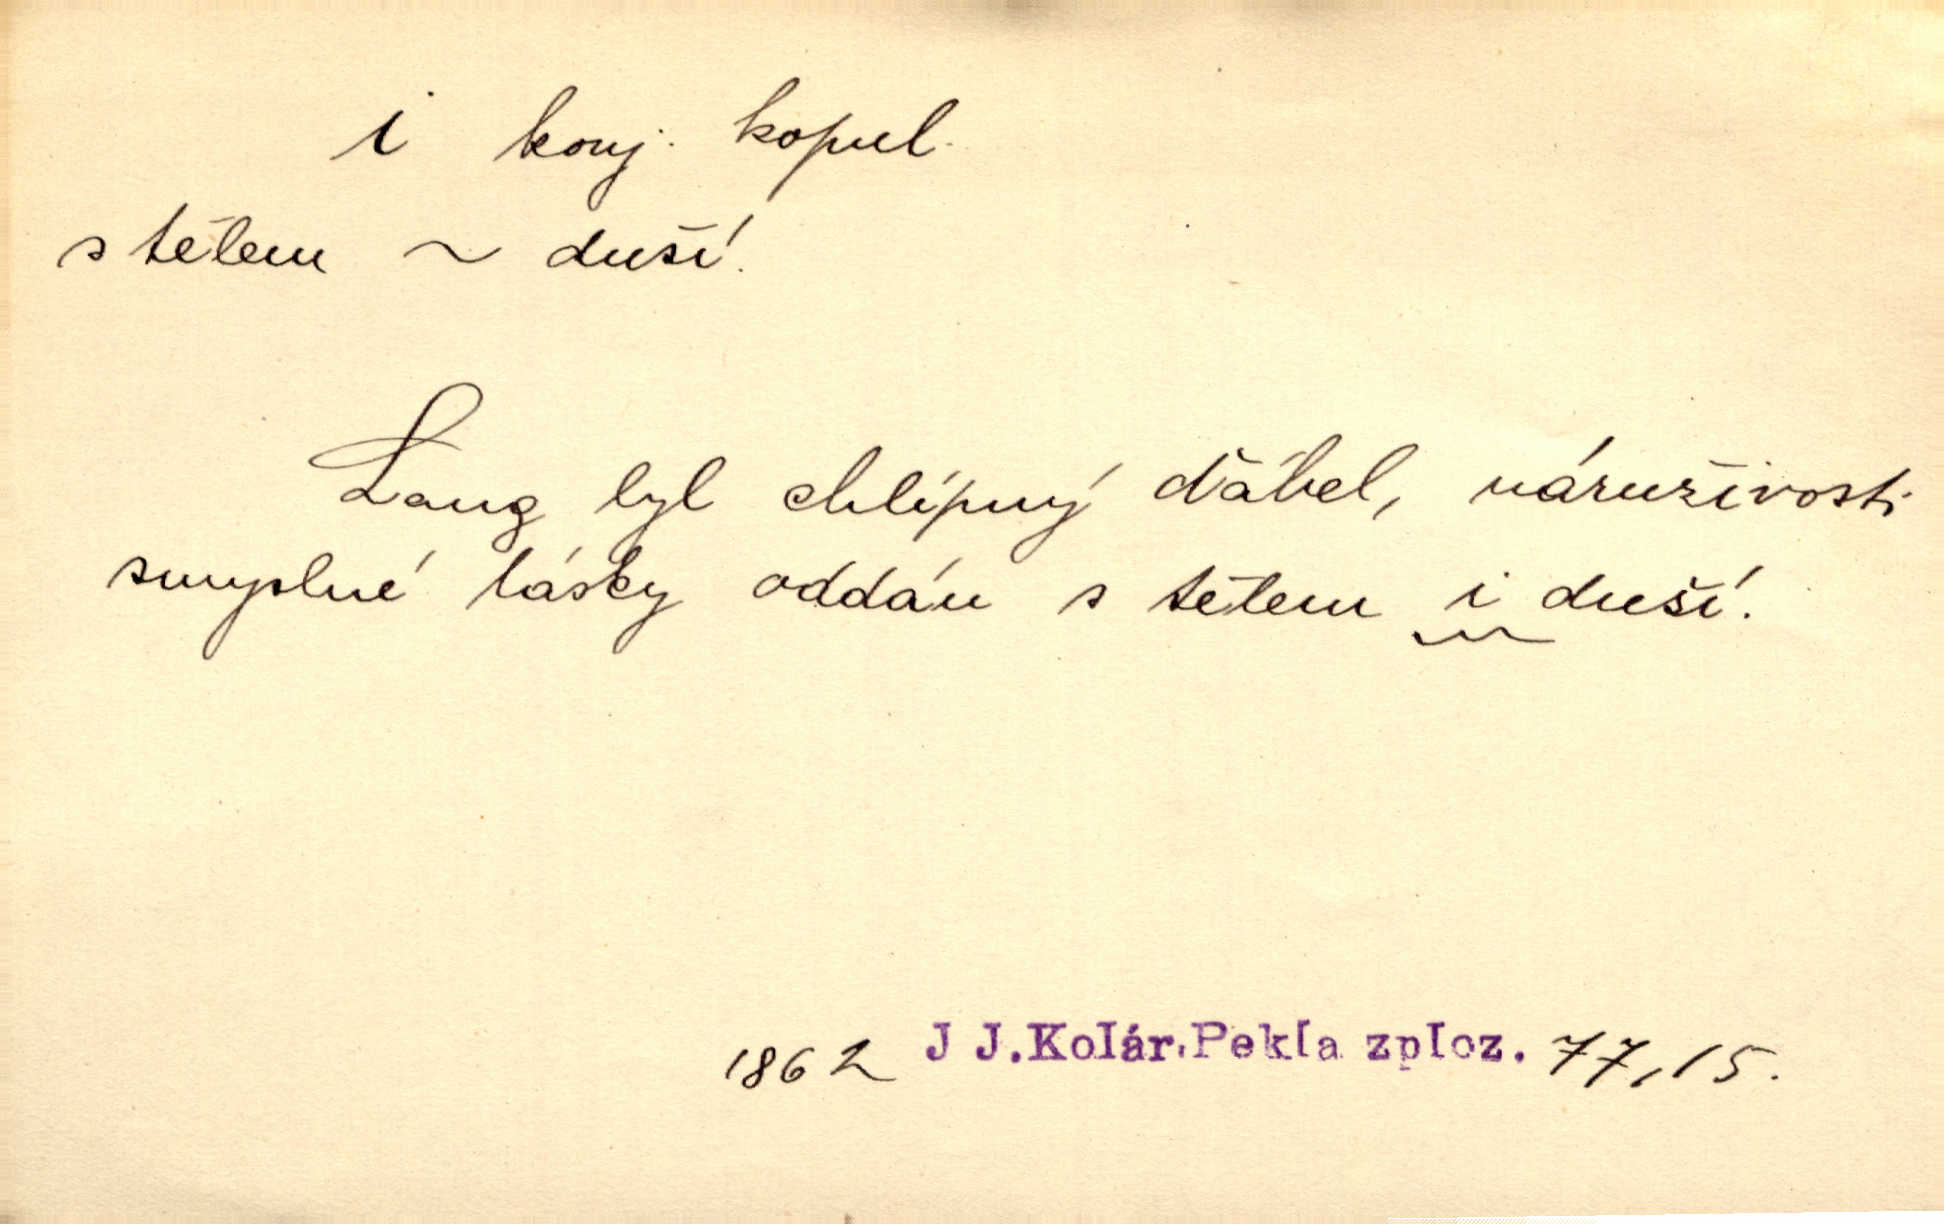 i konj. kopul.
s tělem ~ duší.
Lang byl chlípný ďábel, náruživosti
smyslné lásky oddán s tělem i duší.
1862 J J.Kolár.Pekla zploz. 77,15.